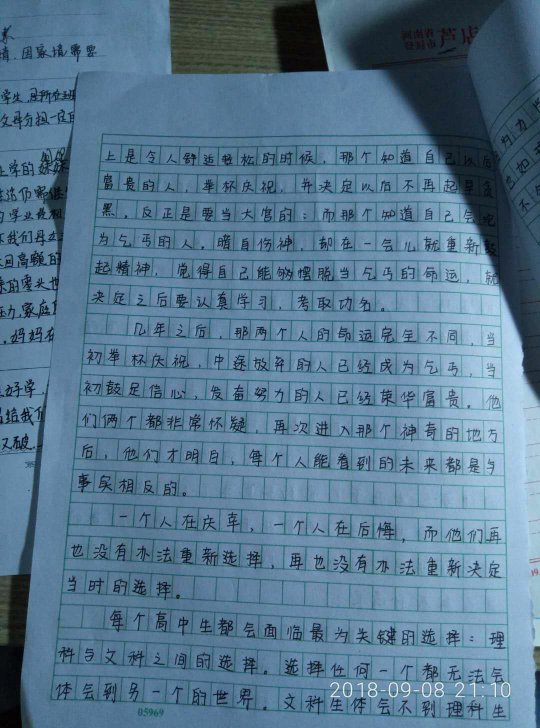 上是令人舒适轻松的时候，那个知道自己以后
富贵的人，举杯庆祝，并决定以后不再起早贪
黑，反正是要当大官的；而那个知道自己会沦
为乞丐的人。暗自伤神，却在一会儿就重新鼓
起精神，觉得自己能够摆脱当乞丐的命运，就
决定之后要认真学习，考取功名。
几年之后，那两个人的命运完全不同，当
初举杯庆祝，中途放弃的人已经成为乞丐，当
初鼓足信心，发奋努力的人已经荣华富贵。他
们俩个都非常怀疑，再次进入那个神奇的地方
后，他们才明白，每个人能看到的未来都是与
事实相反的。
一个人在庆幸，一个人在后悔，而他们再
也没有办法重新选择，再也没有办法重新决定
当时的选择。
每个高中生都会面临最为关键的选择：理
科与文科之间的选择。选择任何一个都无法会
体会到另一个的世界。文科生体会不到理科生
05969
2018-09-08 21:10
情，因家境需要
河南省
登封市